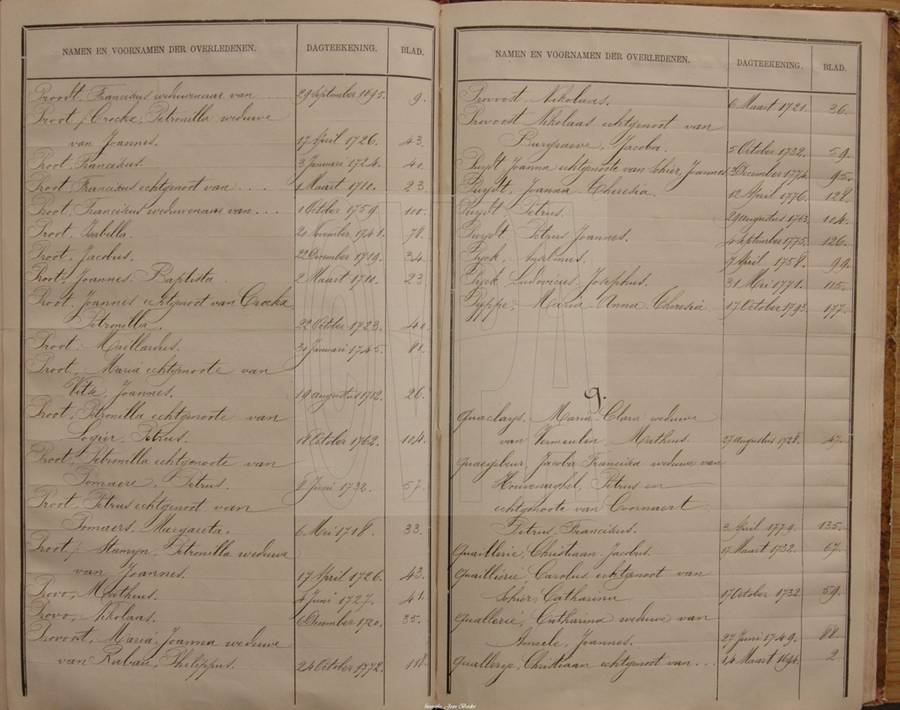 NAMEN EN VOORNAMEN DER OVERLEDENEN. DAGTEEKENING. BLAD.
Proodt, Franciscus weduwenaar van 29 September 1695. 9.
Proot / Crocke, Petronilla weduwe
van Joannes. 17 April 1726. 43.
Proot, Franciscus. 3 Januari 1724. 40.
Proot, Franciscus echtgenoot van .... 1 Maart 1710. 23
Proot, Franciscus weduwenaar van ... 1 October 1759. 100.
Proot, Isabella. 20 November 1748. 78.
Proot, Jacobus. 22 December 1719. 34.
Proot, Joannes Baptista. 2 Maart 1710. 23
Proot, Joannes echtgenoot van Crocke
Petronilla. 22 October 1723. 40
Proot, Maillardus. 30 Januari 1745. 81.
Proot, Maria echtgenoote van
Vits, Joannes. 19 augustus 1712. 26.
Proot, Petronilla echtgenoote van
Logier, Petrus. 18 October 1762. 104.
Proot, Petronilla echtgenoote van
Pomaere, Petrus. 2 Juni 1732. 57.
Proot, Petrus echtgenoot van
Pomaers, Margareta. 6 Mei 1718. 33.
Proot / Stamyn, Petronilla weduwe
van Joannes. 17 April 1726. 43.
Provo, Matheus. 4 Juni 1727. 41.
Provo, Nikolaas. 6 December 1720. 35.
Provoost, Maria Joanna weduwe
van Rabau, Philippus. 24 October 1772. 118.
NAMEN EN VOORNAMEN DER OVERLEDENEN. DAGTEEKENING. BLAD.
Provoost, Nikolaas. 6 Maart 1721. 36.
Provoost, Nikolaas echtgenoot van
Burgraeve, Jacoba. 5 October 1732. 59.
Puydt, Joanna echtgenoote van Schier, Joannes December 1774. 95.
Puydt, Joanna Theresia. 12 April 1776. 128.
Puydt, Petrus. 29 augustus 1763. 104.
Puydt, Petrus Joannes. 4 September 1775. 126.
Pyck, 7 April 1758. 99.
Pyck, Ludovicus Josephus. 31 Mei 1771. 115.
Pyppe, Maria Anna Theresia. 17 October 1793. 177.
Q.
Quaclays, Maria Clara weduwe
van Vermeulen, Matheus. 27 augustus 1728. 47.
Quaegebeur, Jacoba Francisca weduwe van
Houvenaghel, Petrus en
echtgenoote van Coornaert
Petrus Franciscus. 3 April 1779. 135.
Quaillerie, Christiaan Jacobus. 17 Maart 1732. 67.
Quaillerie, Carolus echtgenoot van
Schier, Catharina 17 October 1732 59.
Quallerie, Catharina weduwe van
Ameele, Joannes. 27 Juni 1749. 88.
Quallerye, Christiaan echtgenoot van ... 14 Maart 1694. 2.